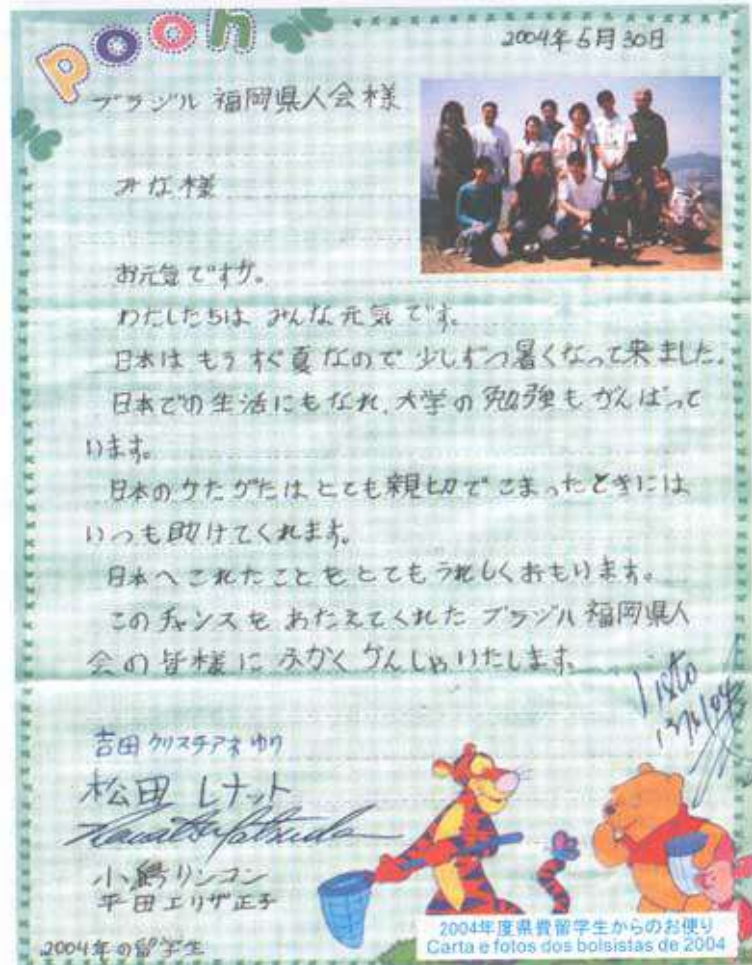 pooh
2004年5月30日
ブラジル 福岡県人会様
みな様
お元気ですか。
わたしたちは みんな元気です。
日本は もうすぐ夏なので 少しずつ暑くなって来ました。
日本での生活にもなれ、大学の勉強もがんばって
います。
日本のかたがたは とても親切で こまったときには
いつも助けてくれます。
日本へこれたことをとてもうれしくおもります。
このチャンスを あたえてくれた ブラジル福岡県人
会の皆様に ふかく かんしゃいたします。
吉田 クリスチアネ ゆり
松田 レナット
小嶋リンコン
平田エリザ正子
2004年の留学生
2004年度県費留学生からのお便り
Carta e fotos dos bolsistas de 2004